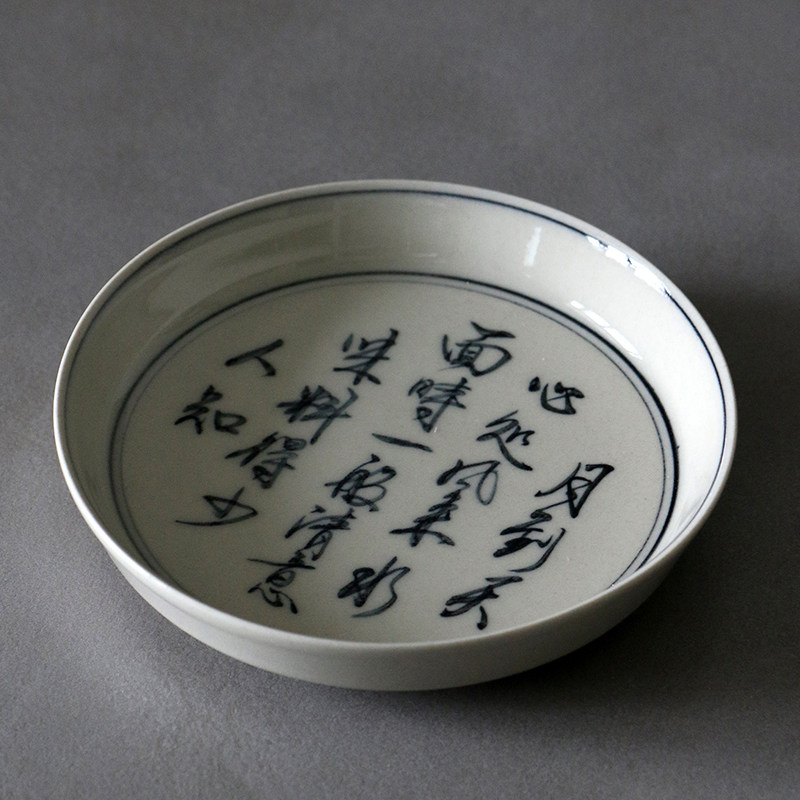 月到天
心处风来水
面時一般清意
味料得少
人知